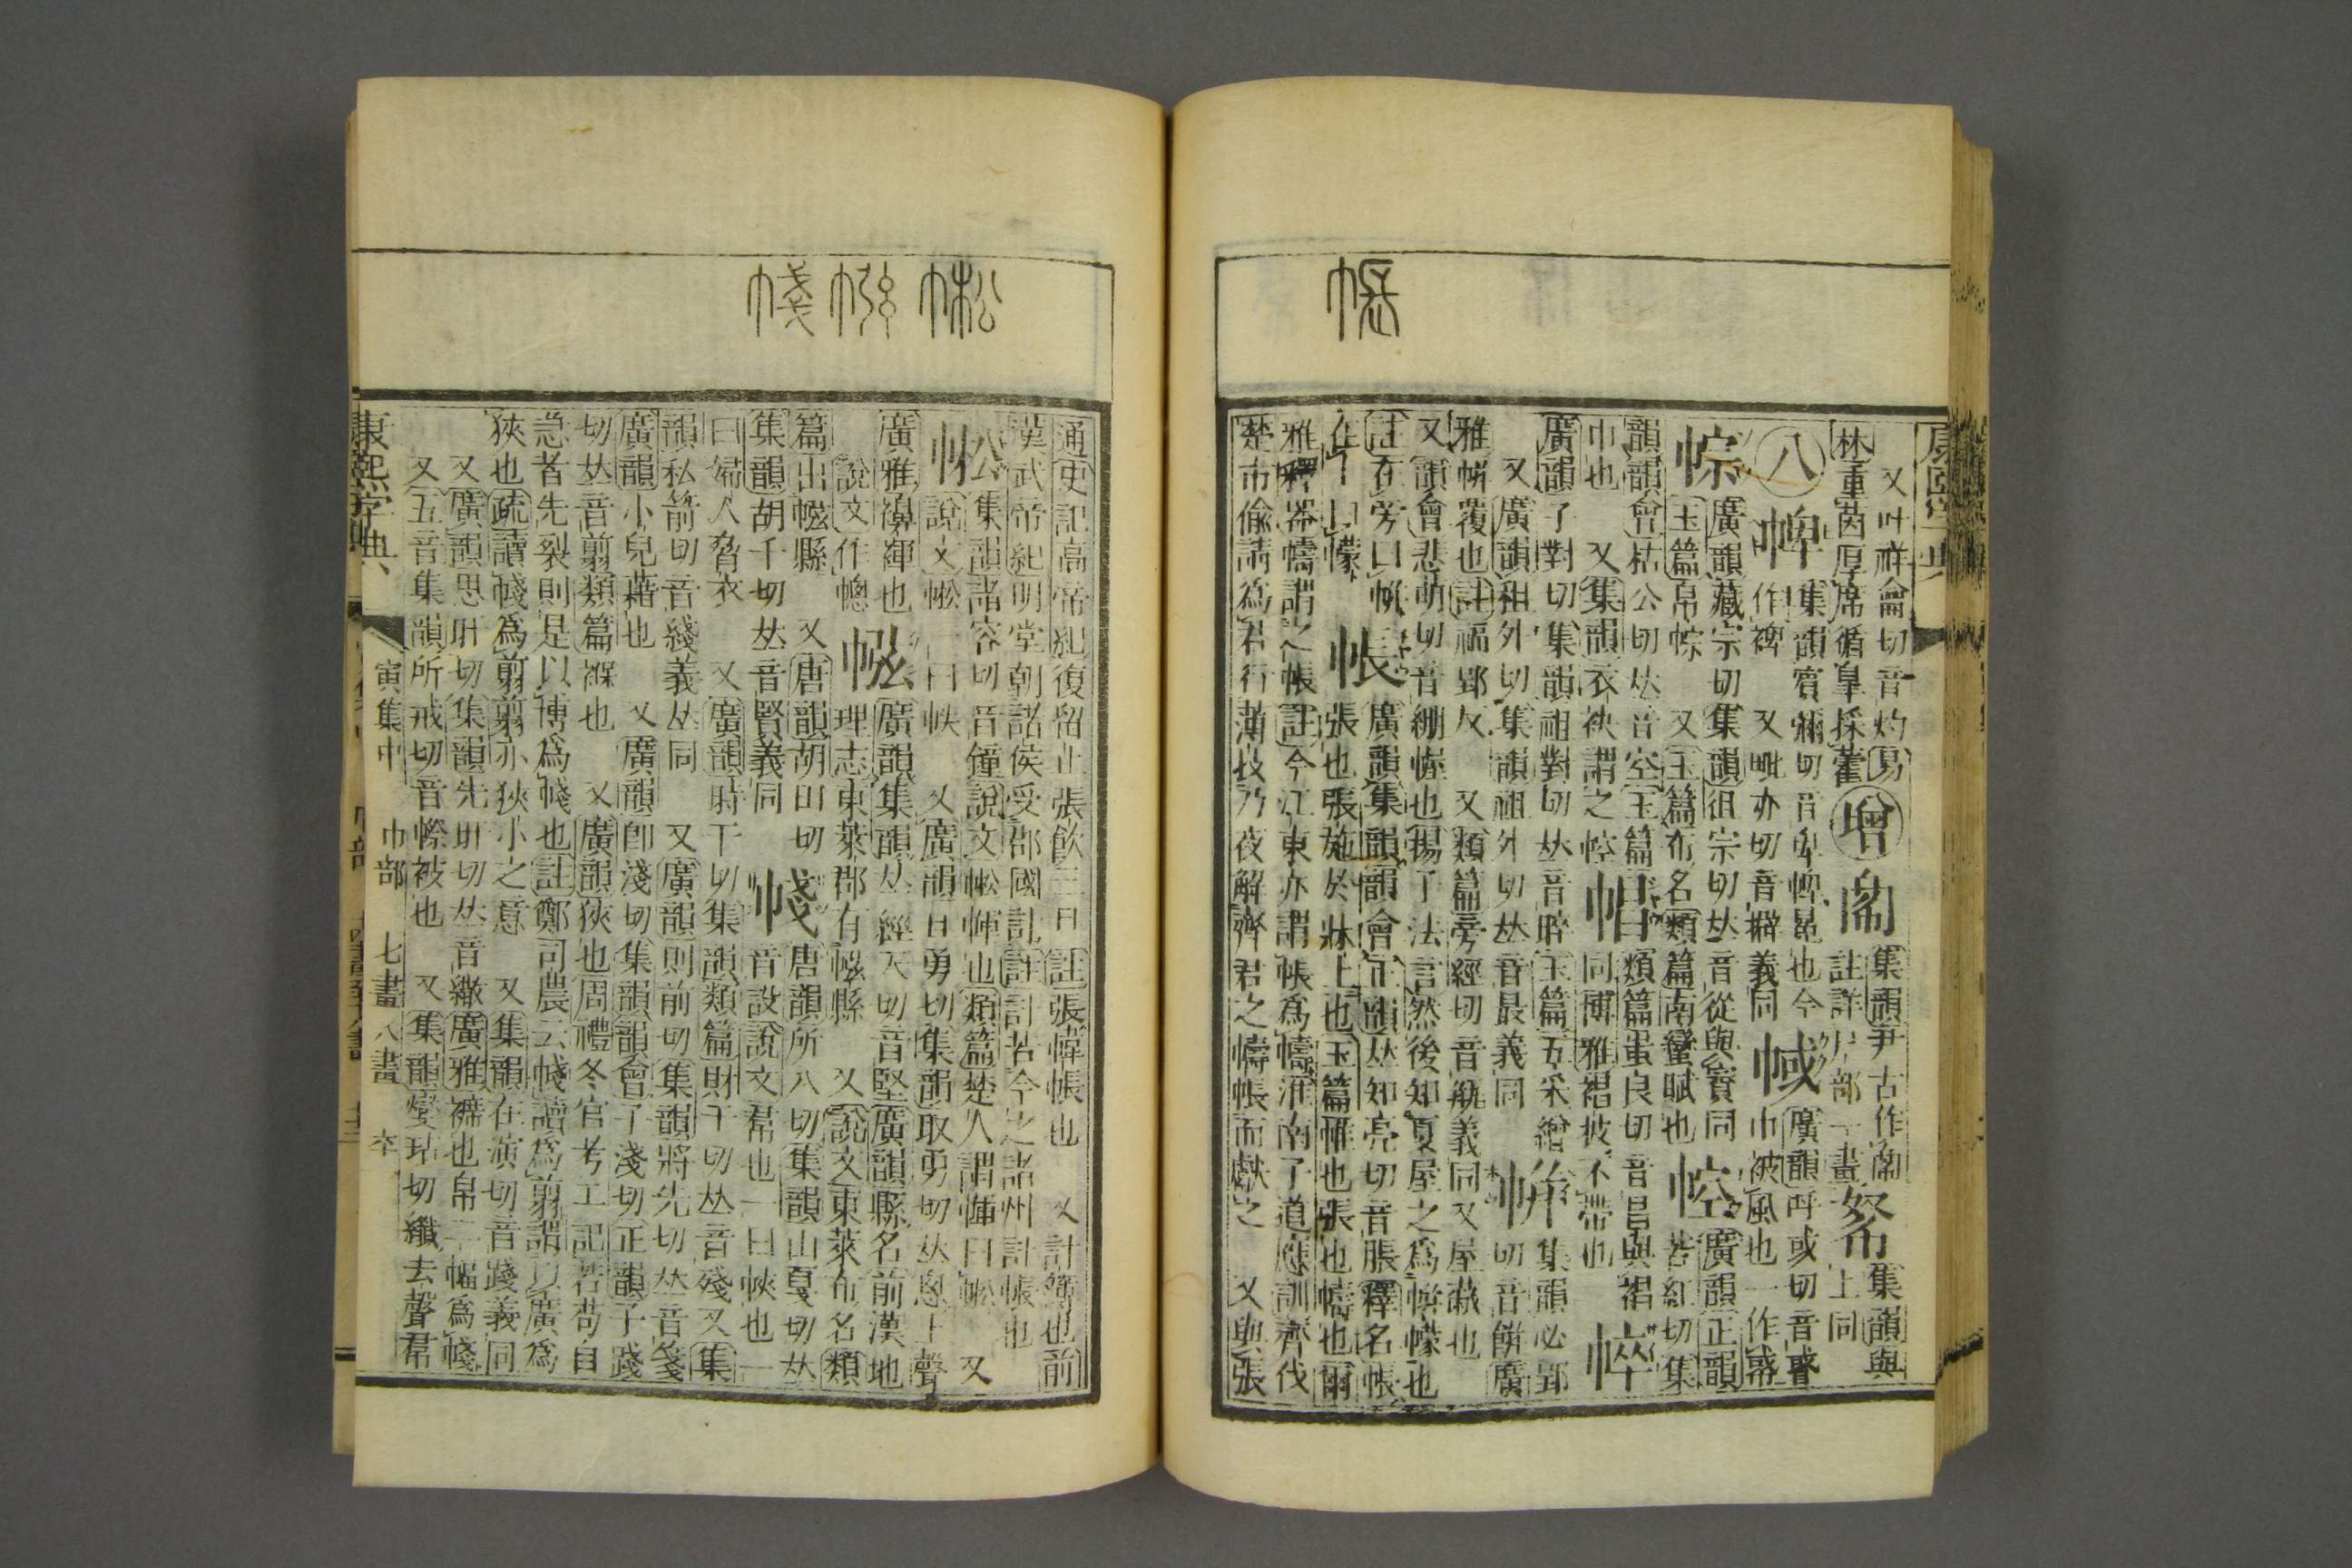 帳
又叶祥龠切音灼易
林重茵厚席循臯採藿增𢂷集韻尹古作𢂷註詳尸部一畫帤集韻與上同
八𢃍集韻賓彌切音卑𢃍冕也今作裨 又毗亦切音擗義同𢃎廣韻呼或切音㦯巾被風也一作幦
㡡廣韻藏宗切集韻徂宗切𠀤音從與賨同玉篇帛㡡 又玉篇布名類篇南蠻賦也㡁廣韻正韻苦紅切集
韻韻會枯公切𠀤音空玉篇巾也 又集韻衣袂謂之㡁𢃇類篇蚩良切音昌與裮同博雅裮被不帶也㡜
廣韻子對切集韻祖對切𠀤音晬玉篇五采繒 又廣韻祖外切集韻祖外切𠀤音最義同帡集韻必郢切音餠廣
雅帡覆也註福郢反 又類篇旁經切音瓶義同又屋蔽也
又韻會悲萌切音繃幄也揚子法言然後知夏屋之爲帡幪也
註在旁曰帡在上曰幪 帳廣韻集韻韻會正韻𠀤知亮切音脹釋名帳張也張施於牀上也玉篇帷也張也幬也爾
雅釋器幬謂之帳註今江東亦謂帳爲幬淮南子道應訓齊伐
楚市偷請爲君行薄技乃夜解齊君之幬帳而獻之 又與張
㡆 㡉 帴
通史記高帝紀復留止張飮三日註張幃帳也 又計簿也前
漢武帝紀明堂朝諸侯受郡國計註計若今之諸州計帳也
㡆集韻諸容切音鐘說文㡆㡓也類篇楚人謂㡓曰㡆 又說文㡆一曰帙 又廣韻且勇切集韻取勇切𠀤悤上聲
廣雅㡆襌也 說文作幒 㡉廣韻集韻𠀤經天切音堅廣韻縣名前漢地理志東萊郡有㡉縣 又說文東萊布名類
篇出㡉縣 又唐韻胡田切集韻胡千切𠀤音賢義同 帴唐韻所八切集韻山戛切𠀤音殺說文帬也一曰帗也一
曰婦人脅衣 又廣韻昨干切集韻類篇財干切𠀤音殘又集
韻私箭切音綫義𠀤同 又廣韻則前切集韻將先切𠀤音箋
廣韻小兒藉也 又廣韻卽淺切集韻韻會子淺切正韻子踐
切𠀤音翦類篇褓也 又廣韻狹也周禮冬官考工記若苟自
急者先裂則是以博爲帴也註鄭司農云帴讀爲翦謂以廣爲
狹也疏讀帴爲翦翦亦狹小之意 又集韻在演切音踐義同
又廣韻思旰切集韻先旰切𠀤音繖廣雅㡜也帛二幅爲帴
又五音集韻所戒切音幓被也 又集韻燮玷切纖去聲帬
康熙字典 寅集中 巾部 七畫 八畫 卒